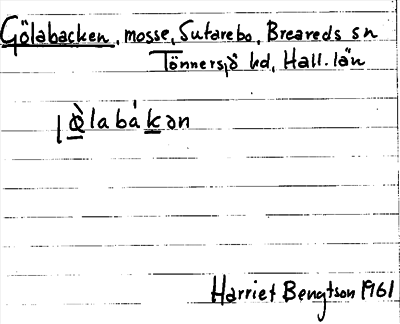 Gölabacken, mosse, Sutarebo, Breareds sn
Tönnersjö hd, Hall. län
Harriet Bengtson 1961